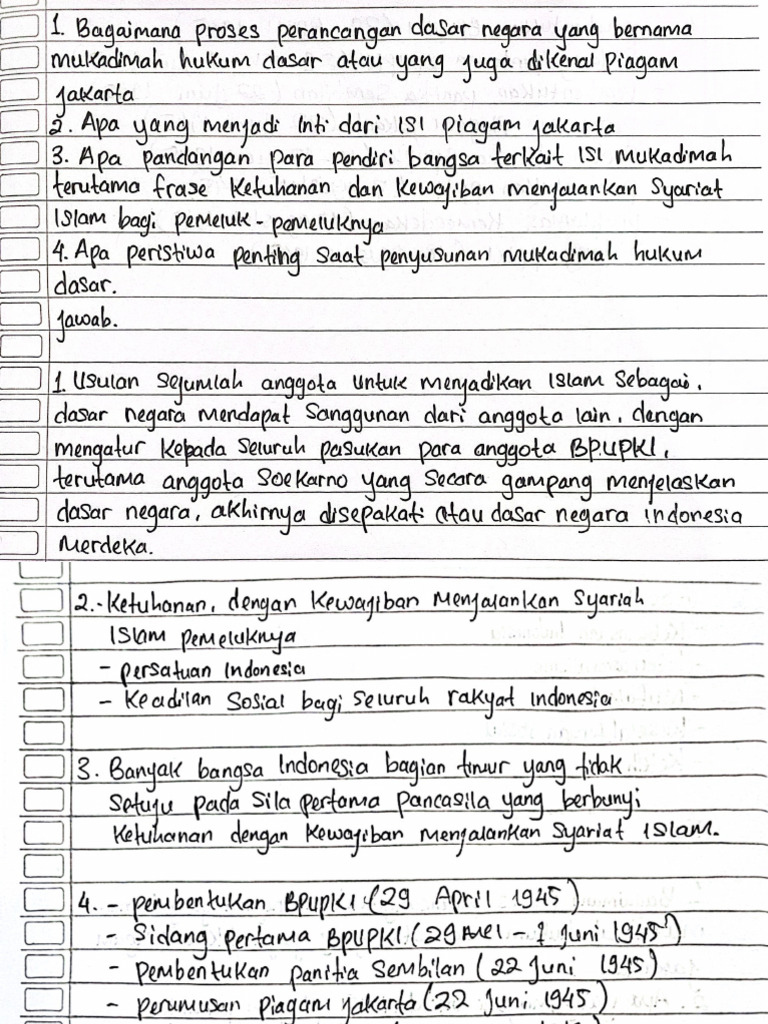 1. Bagaimana proses perancangan dasar negara yang bernama
mukadimah hukum dasar atau yang juga dikenal Piagam
Jakarta
2. Apa yang menjadi inti dari isi piagam jakarta
3. Apa pandangan para pendiri bangsa terkait isi mukadimah
terutama frase ketuhanan dan kewajiban menjalankan syariat
Islam bagi pemeluk-pemeluknya
4. Apa peristiwa penting saat penyusunan mukadimah hukum
dasar.
Jawab.
1. Usulan sejumlah anggota untuk menjadikan Islam sebagai.
dasar negara mendapat sanggunan dari anggota lain, dengan
mengatur kepada seluruh pasukan para anggota BPUPKI,
terutama anggota Soekarno yang secara gampang menjelaskan
dasar negara, akhirnya disepakati atau dasar negara indonesia
Merdeka.
2. - Ketuhanan, dengan kewajiban menjalankan syariah
Islam pemeluknya
- persatuan Indonesia
- Keadilan sosial bagi seluruh rakyat indonesia
3. Banyak bangsa Indonesia bagian timur yang tidak
setuju pada sila pertama pancasila yang berbunyi
Ketuhanan dengan kewajiban menjalankan syariat Islam.
4. - pembentukan BPUPKI (29 April 1945)
- Sidang pertama BPUPKI (29 Mei - 1 Juni 1945)
- pembentukan panitia Sembilan (22 Juni 1945)
- perumusan piagam jakarta (22 Juni 1945)